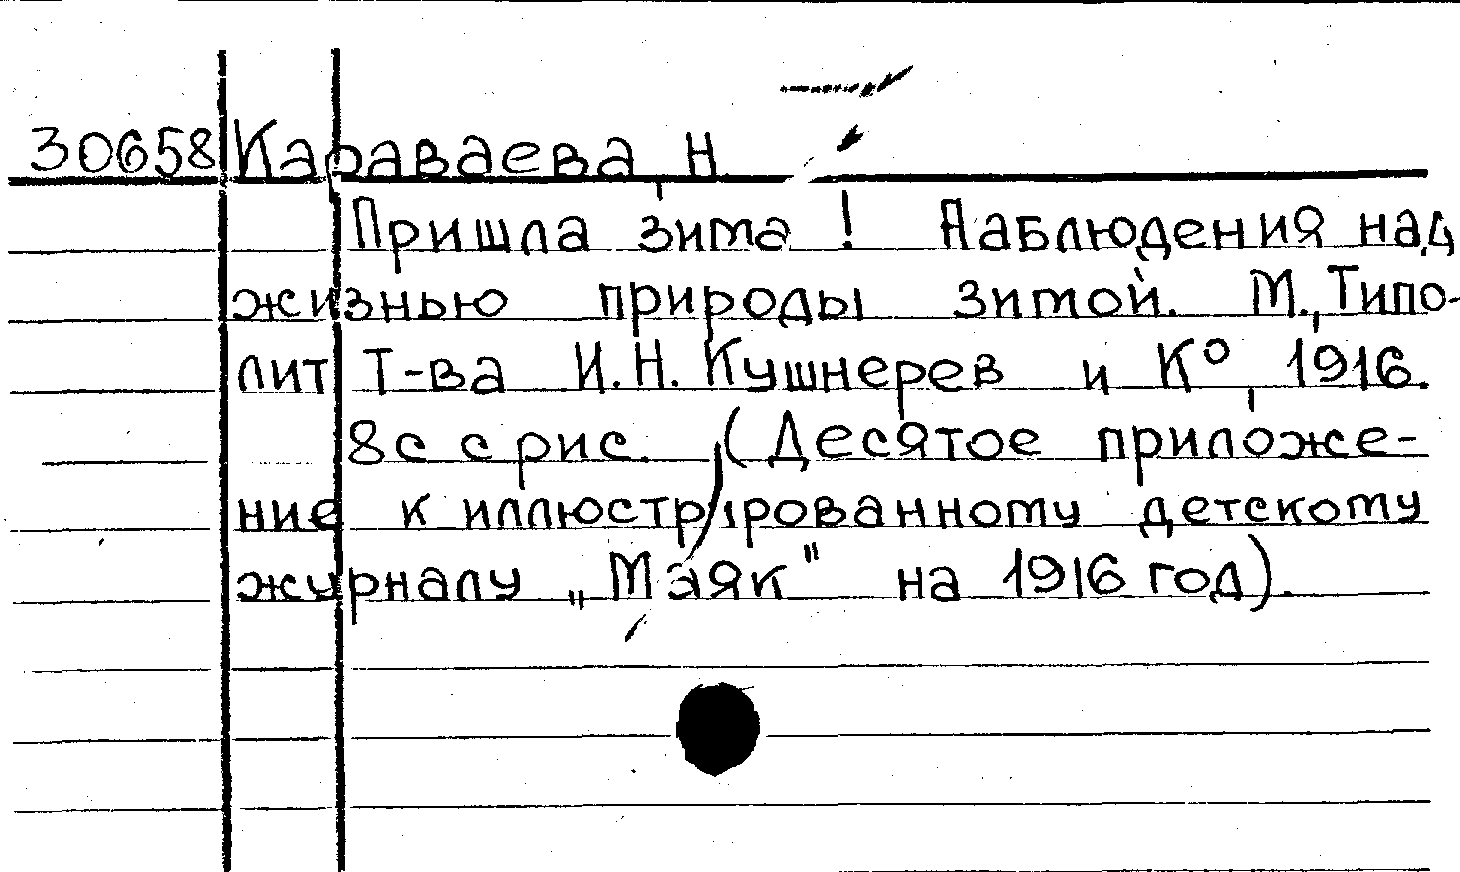 30658 Караваева, Н
Пришла зима! Наблюдения над
жизнью природы зимой. М., Типо-
лит Т-ва И.Н. Кушнерев и К°, 1916.
8с с рис. (Десятое приложе-
ние к иллюстрированному детскому
журналу „Маяк" на 1916 год).